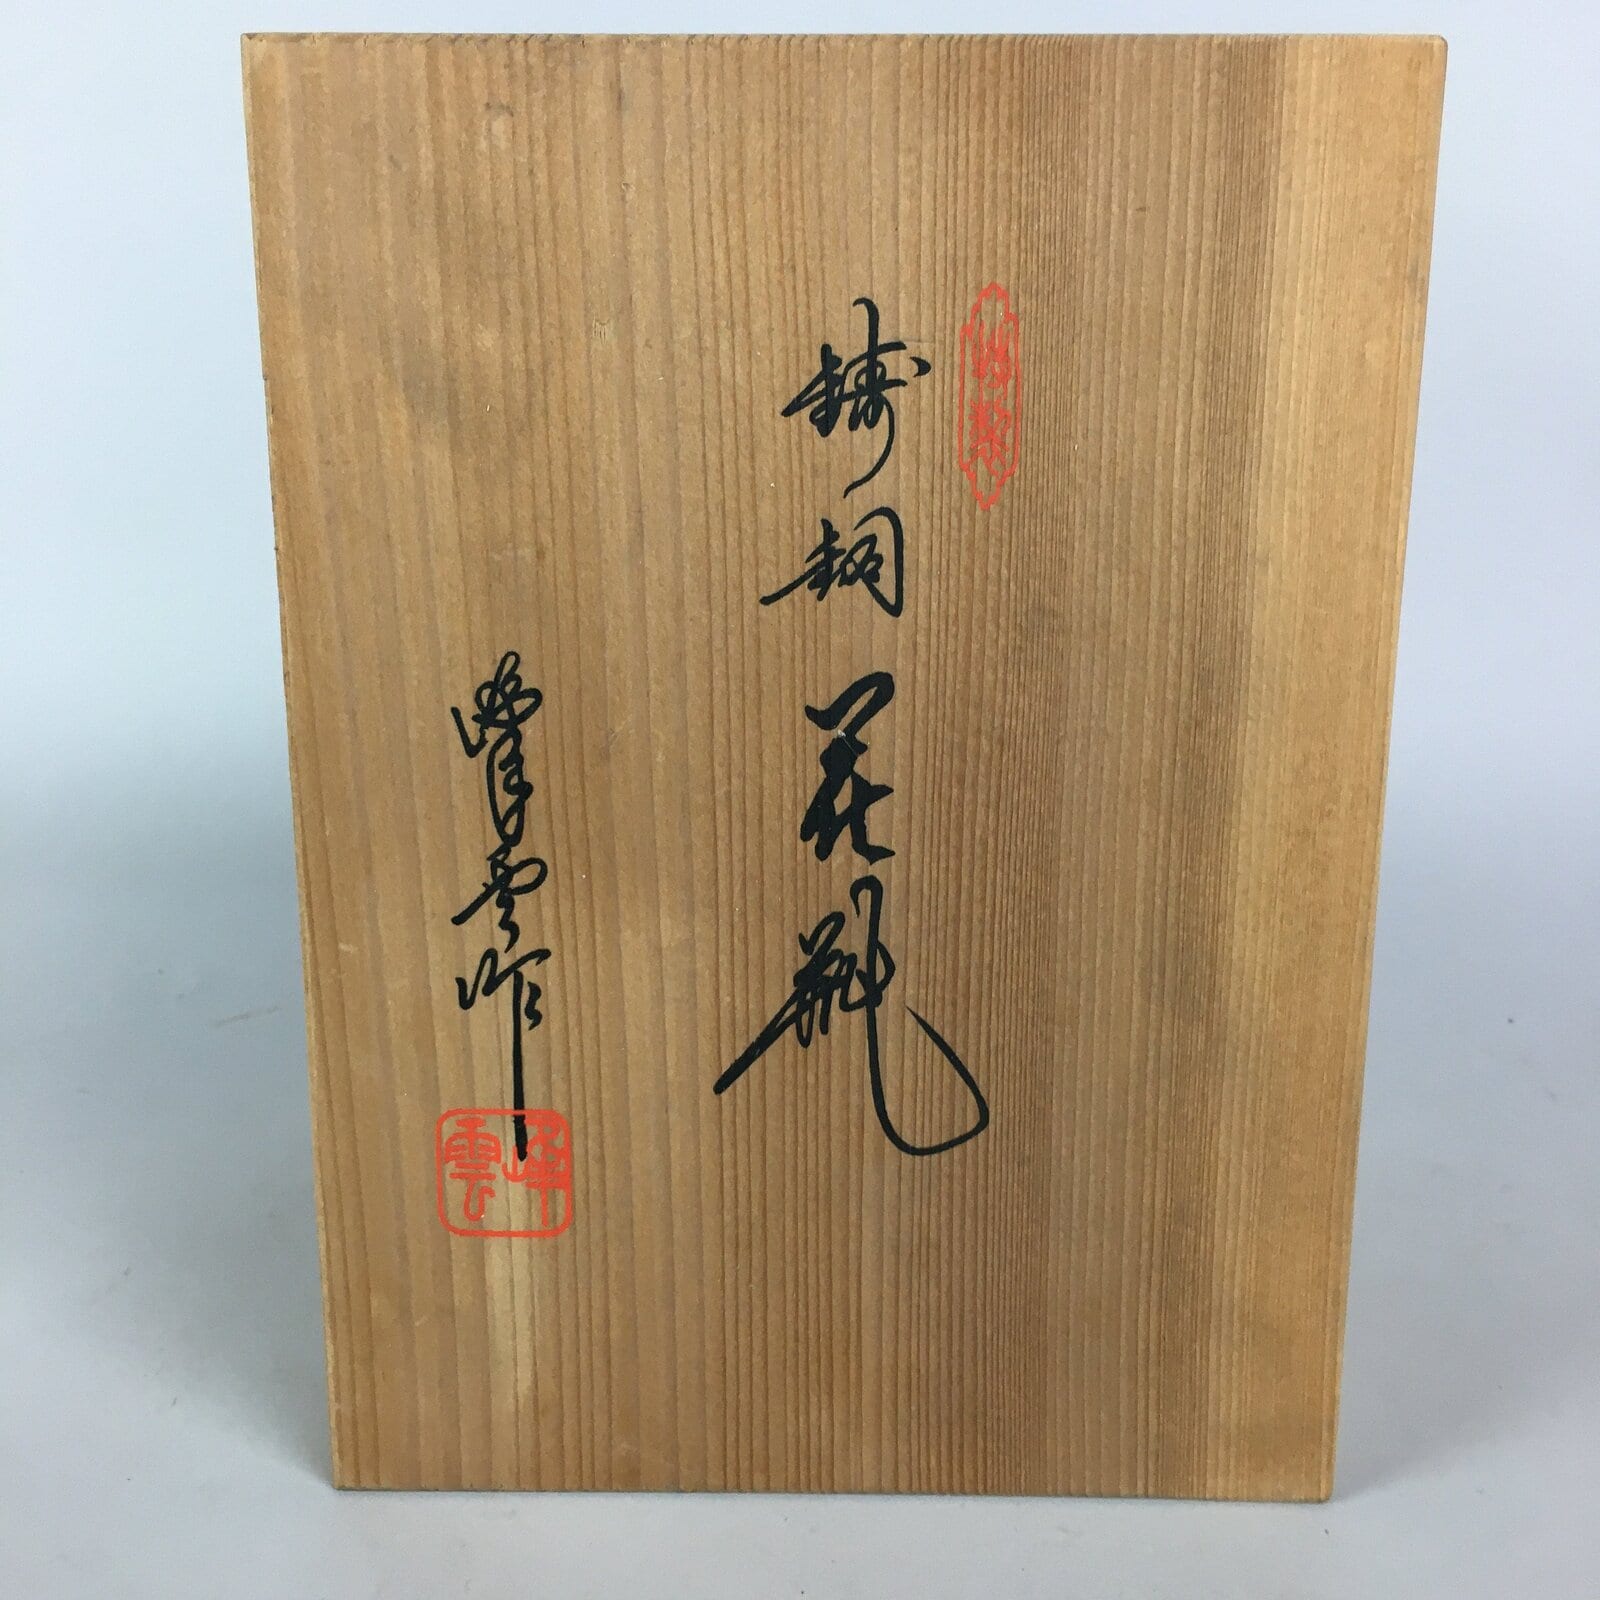 特製
鋳銅 花瓶
峰雲作
峰雲